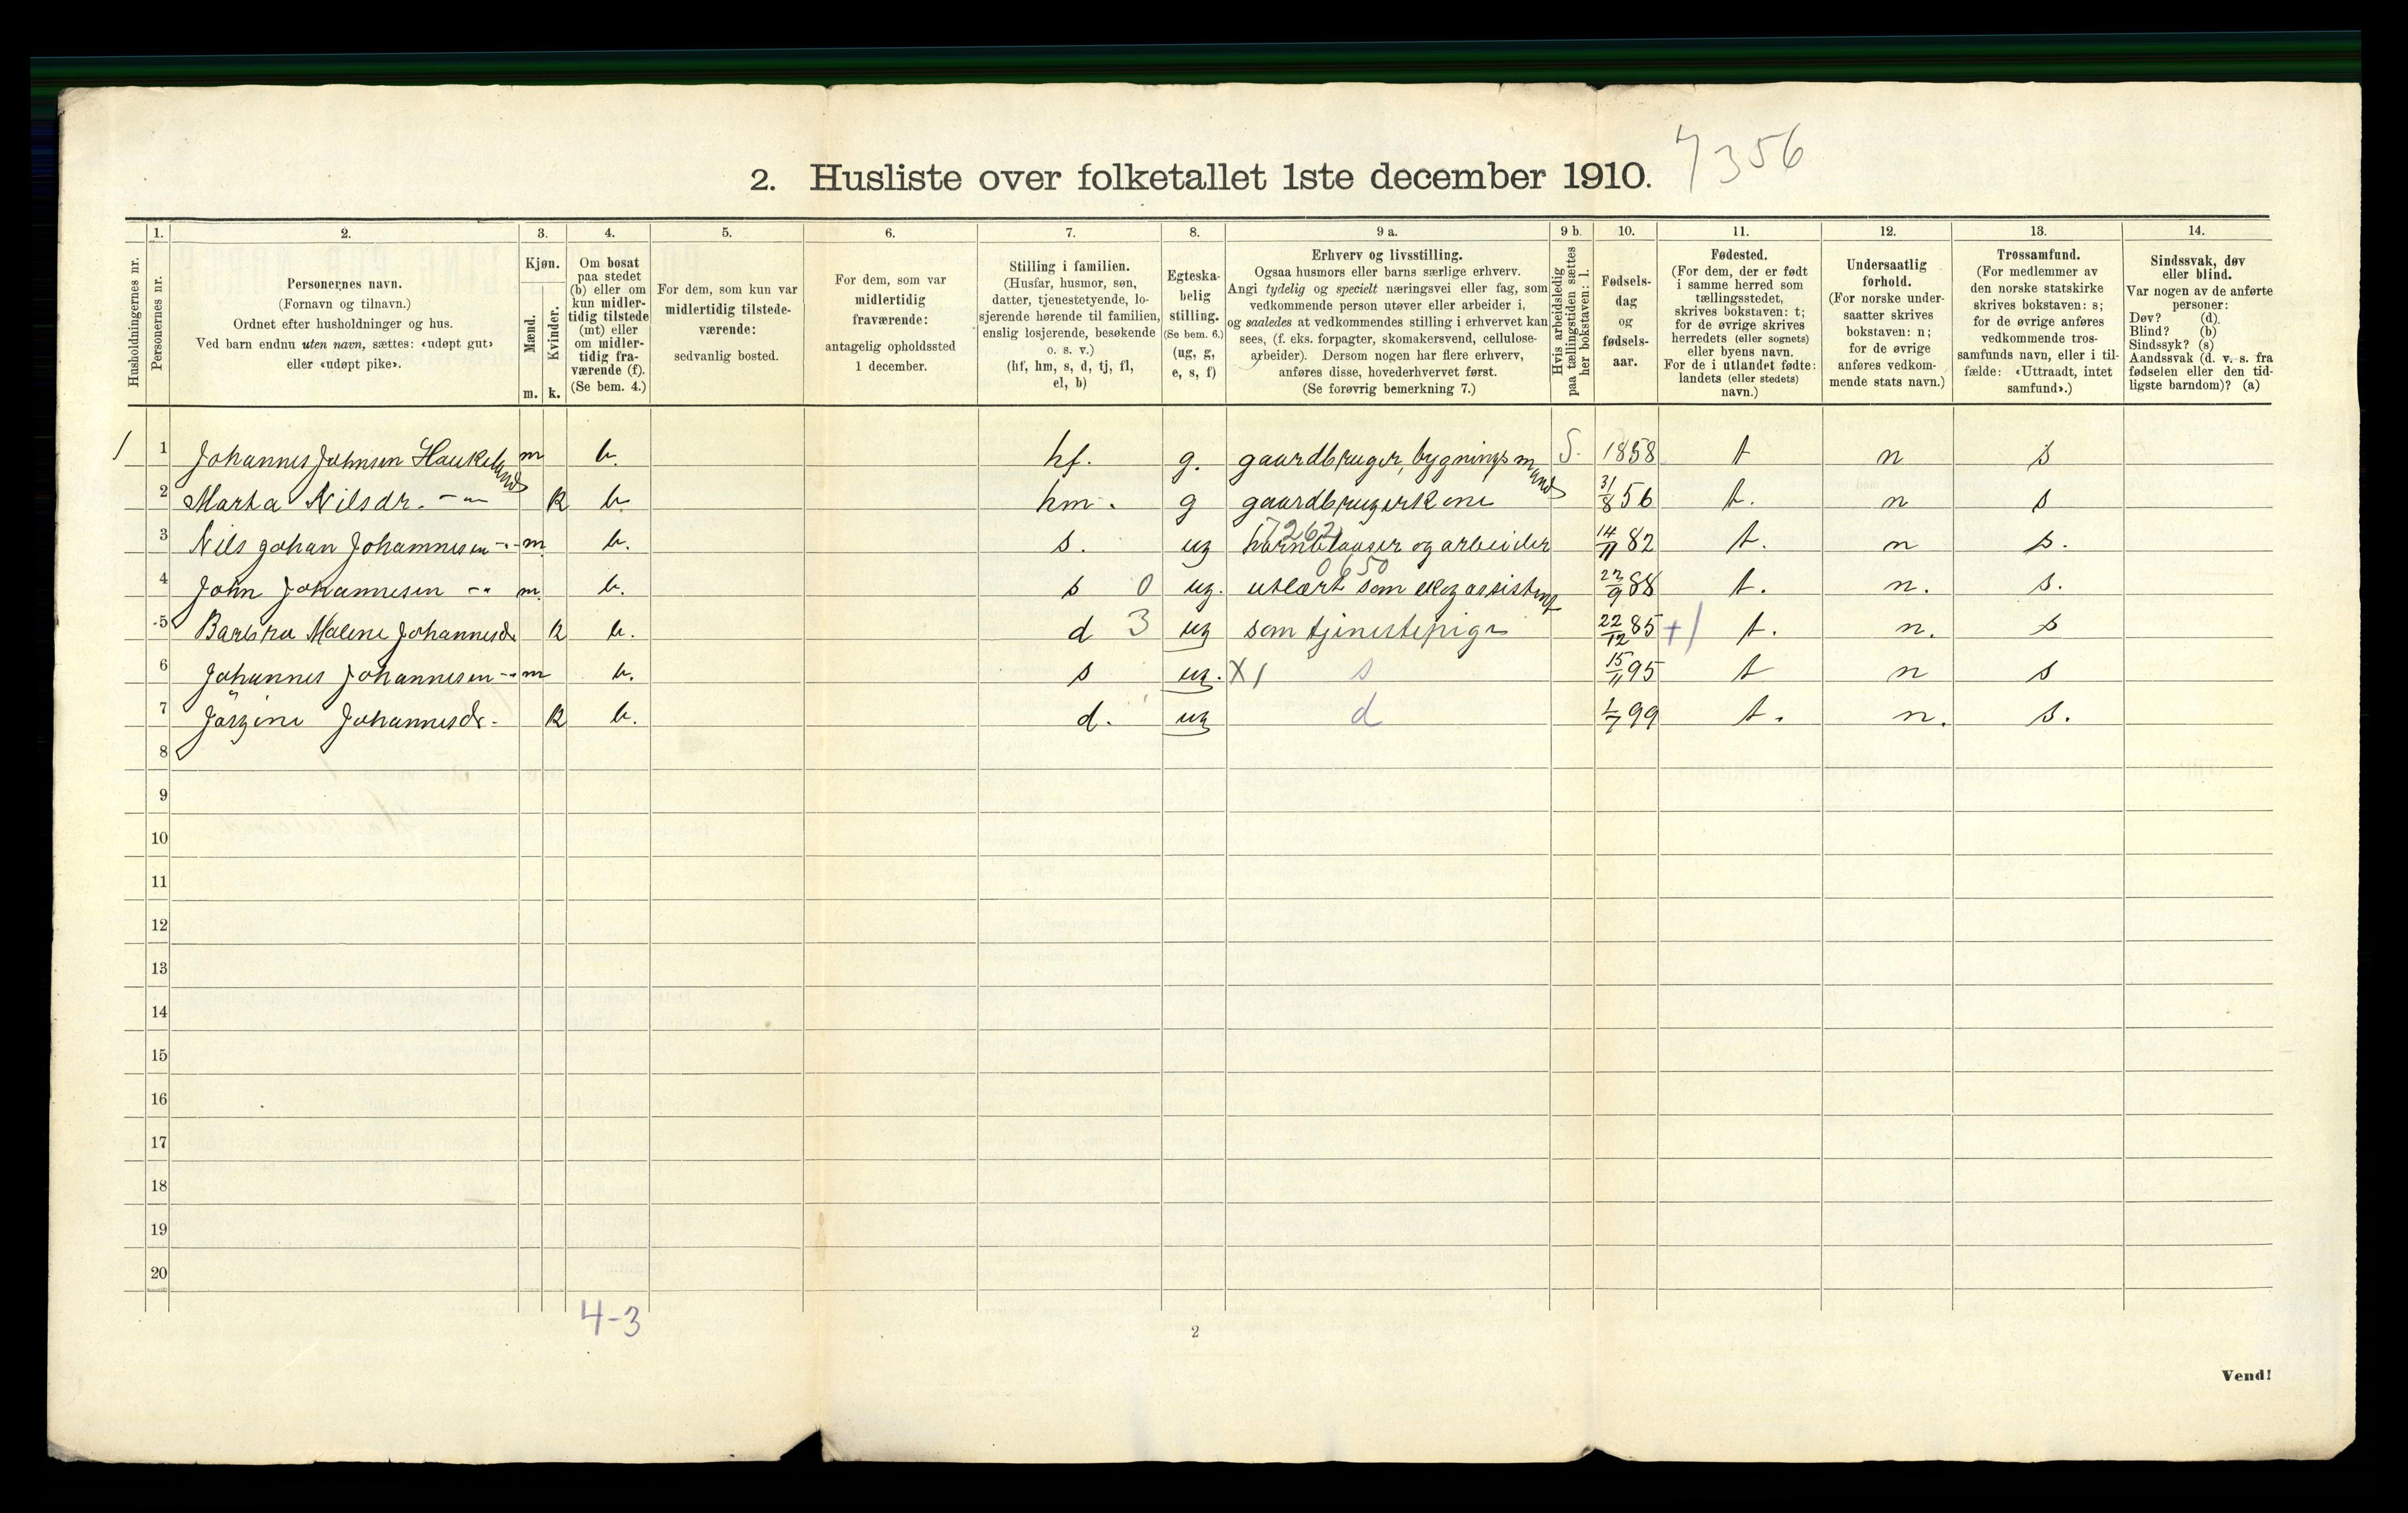 2. Husliste over folketallet 1ste december 1910. 7356
Husholdningernes nr.
1.
Personernes nr.
2.
Personernes navn.
(Fornavn og tilnavn.)
Ordnet efter husholdninger og hus.
Ved barn endnu uten navn, sættes: «udøpt gut»
eller «udøpt pike».
3.
Kjøn.
Mænd.
Kvinder.
m. k.
4.
Om bosat
paa stedet
(b) eller om
kun midler-
tidig tilstede
(mt) eller
om midler-
tidig fra-
værende (f).
(Se bem. 4.)
5.
For dem, som kun var
midlertidig tilstede-
værende:
sedvanlig bosted.
6.
For dem, som var
midlertidig
fraværende:
antagelig opholdssted
1 december.
7.
Stilling i familien.
(Husfar, husmor, søn,
datter, tjenestetyende, lo-
sjerende hørende til familien,
enslig losjerende, besøkende
o. s. v.)
(hf, hm, s, d, tj, fl,
el, b)
8.
Egteska-
belig
stilling.
(Se bem. 6.)
(ug, g,
e, s, f)
9 a.
Erhverv og livsstilling.
Ogsaa husmors eller barns særlige erhverv.
Angi tydelig og specielt næringsvei eller fag, som
vedkommende person utøver eller arbeider i,
og saaledes at vedkommendes stilling i erhvervet kan
sees, (f. eks. forpagter, skomakersvend, cellulose-
arbeider). Dersom nogen har flere erhverv,
anføres disse, hovederhvervet først.
(Se forøvrig bemerkning 7.)
9 b.
Hvis arbeidsledig
paa tællingstiden sættes
her bokstaven: l.
10.
Fødsels-
dag
og
fødsels-
aar.
11.
Fødested.
(For dem, der er født
i samme herred som
tællingsstedet,
skrives bokstaven: t;
for de øvrige skrives
herredets (eller sognets)
eller byens navn.
For de i utlandet fødte:
landets (eller stedets)
navn.)
12.
Undersaatlig
forhold.
(For norske under-
saatter skrives
bokstaven: n;
for de øvrige
anføres vedkom-
mende stats navn.)
13.
Trossamfund.
(For medlemmer av
den norske statskirke
skrives bokstaven: s;
for de øvrige anføres
vedkommende tros-
samfunds navn, eller i til-
fælde: «Uttraadt, intet
samfund».)
14.
Sindssvak, døv
eller blind.
Var nogen av de anførte
personer:
Døv? (d)
Blind? (b)
Sindssyk? (s)
Aandssvak (d. v. s. fra
fødselen eller den tid-
ligste barndom)? (a)
1 1 Johannes Johnsen Haukeland m b. hf. g. gaardbruger, bygningsmand S. 1858 t n s
2 Marta Nilsdr. -"- k b. hm. g gaardbrugerkone 31/8 56 t. n s
7262
3 Nils Johan Johannesen -"- m b. s. ug og arbeider 14/11 82 t. n s.
0650
4 John Johannesen -"- m. b. s 0 ug. utlært som skogassistent 88 t. n. s.
5 Barbra Malene Johannesdr k b. d 3 ug som tjenestepige 22/12 85 +1 t. n. s
6 Johannes Johannesen -"- m b. s ug. X1 s 15/11 95 t n s
7 Johannesdr. k b. d. ug d 1/7 99 t. n. s.
8
9
10
11
12
13
14
15
16
17
18
19
20
4-3
2
Vend!